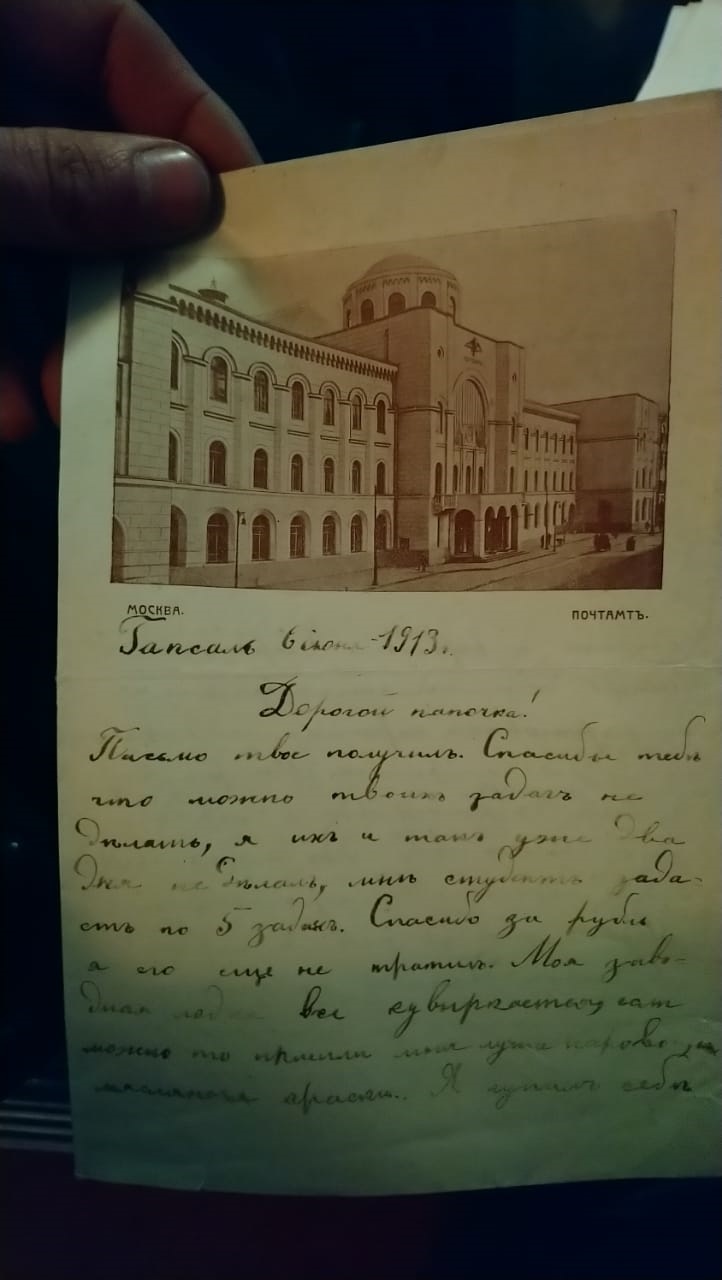 МОСКВА.
ПОЧТАМТЪ.
Гапсаль 6 іюня 1913 г.
Дорогой папочка!
Письмо твое получилъ. Спасибо тебѣ
что можно твоихъ задачъ не
дѣлать, я ихъ и такъ уже два
дня не дѣлалъ, мнѣ студентъ зада-
етъ по 5 задачъ. Спасибо за рубль
я его еще не тратилъ. Моя заво-
дная лодка все кувыркается, если
можно то пришли мнѣ
краски.. Я купилъ себѣ